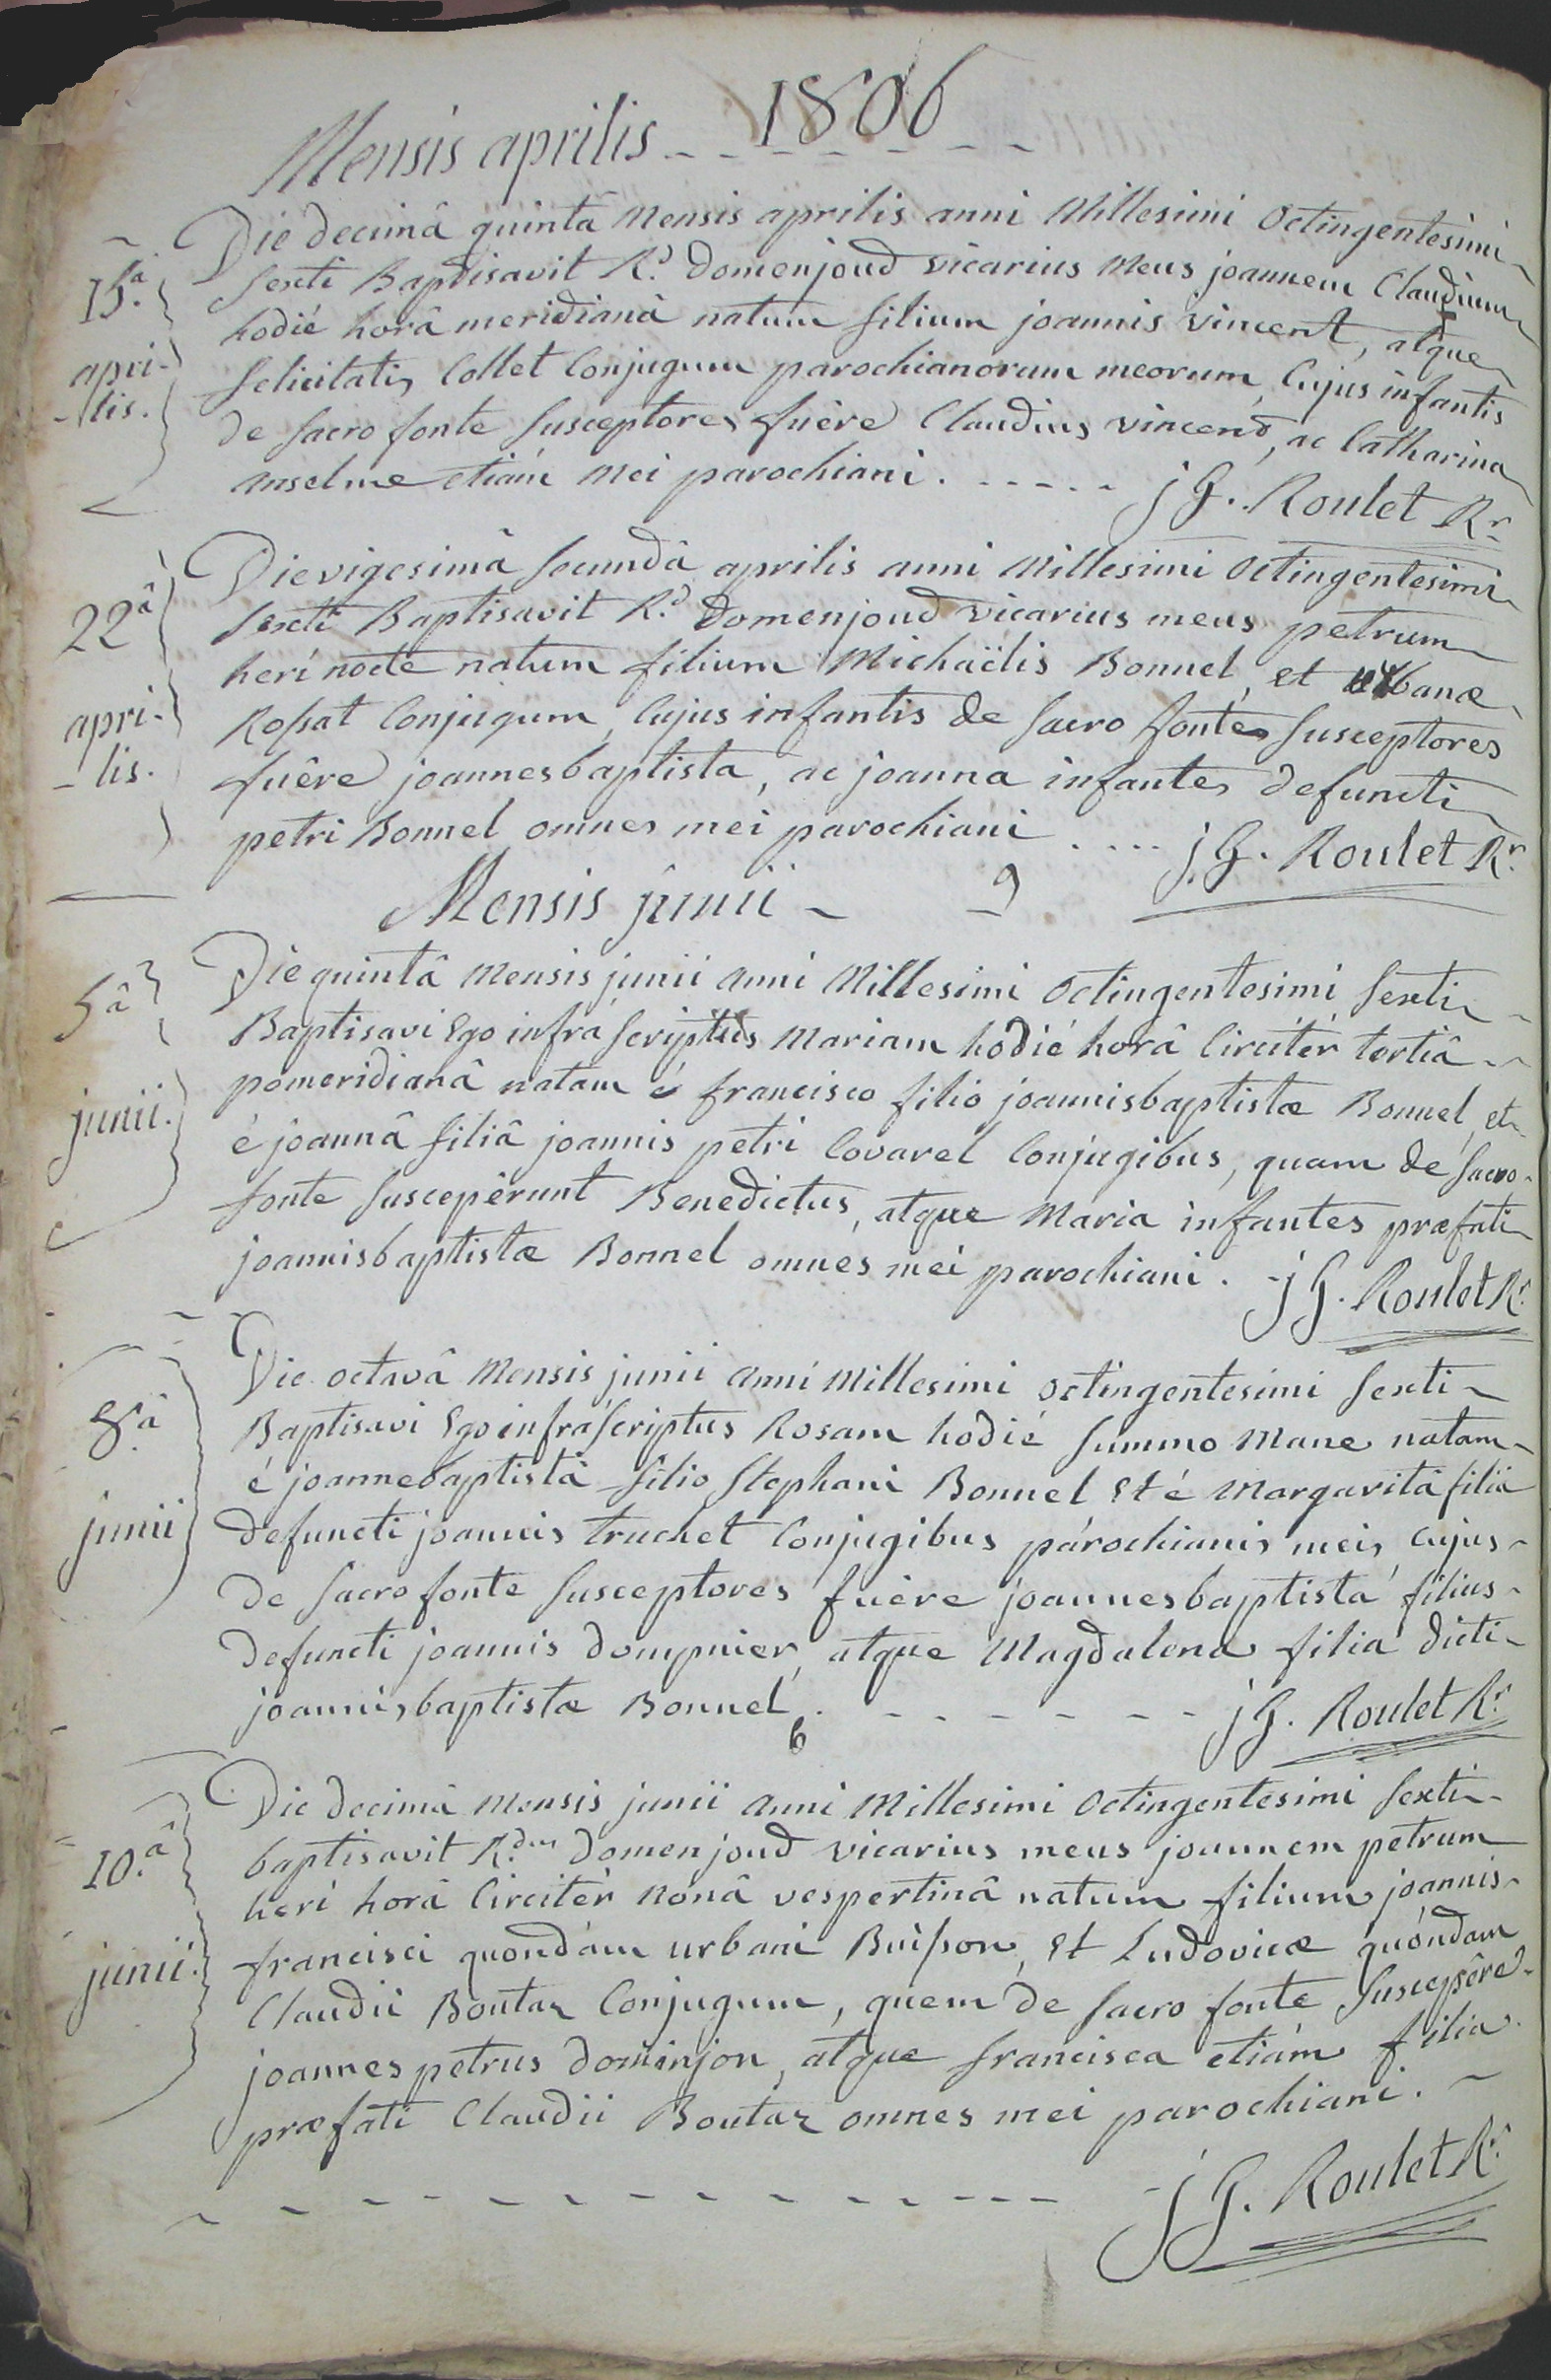 1806
Mensis aprilis
15.â
apri-
-lis.
Die decimâ quintâ Mensis aprilis anni Millesimi Octingentesimi
Sexti Baptisavit R.d Domenjoud vicarius Meus joannem Claudium
hodié horâ meridianâ natum filium joannis vincent, atque
felicitatis Collet Conjugum parochianorum meorum, Cujus infantis
de Sacro fonte Susceptores fuêre Claudius vincend, ac Catharina
anselme etiám Mei parochiani. - - - - - j G. Roulet Rr
22â
apri-
-lis.
Die vigesimâ Secundâ aprilis anni Millesimi Octingentesimi
Sexti Baptisavit R.d Domenjoud vicarius meus petrum
heri nocte natum filium Michaëlis Bonnel, et urbanæ
Rossat Conjugum, Cujus infantis de Sacro fonte Susceptores
fuêre joannesbaptista, ac joanna infantes defuncti
petri Bonnel omnes mei parochiani .... j. G. Roulet Rr
Mensis junii - 9
5â
junii.
Die quintâ Mensis junii anni Millesimi Octingentesimi Sexti
Baptisavi Ego infrá Scriptus Mariam hodié horâ Circitér tertiâ
pomeridianâ natam é francisco filio joannisbaptistæ Bonnel, et
é joannâ filiâ joannis petri Covarel Conjugibus, quam de Sacro
fonte Suscepêrunt Benedictus, atque Maria infantes præfati
joannisbaptistæ Bonnel omnes mei parochiani. j G. Roulet Rr
8.â
junii
Die octavâ Mensis junii anni Millesimi octingentesimi Sexti
Baptisavi Ego infráScriptus Rosam hodié Summo Mane natam
é joannebaptistâ filio Stephani Bonnel Et é Margaritâ filiâ
defuncti joannis truchet Conjugibus párochianis meis, cujus
de Sacro fonte Susceptores fuêre joannesbaptista filius
defuncti joannis dompnier, atque Magdalena filia dicti
joannisbaptistæ Bonnel. - - - - - - j G. Roulet Rr
6
10.â
junii.
Die decimâ Mensis junii anni Millesimi Octingentesimi Sexti
baptisavit R.dus Domenjoud vicarius meus joannem petrum
heri horâ Circitér Nonâ vespertinâ natum filium joannis
francisci quondám urbani Buisson, Et Ludovicæ quóndam
Claudii Boutaz Conjugum, quem de Sacro fonte Suscepêre
joannes petrus dominjon, atque francisca etiám filia
præfati Claudii Boutaz omnes mei parochiani.
j G. Roulet Rr